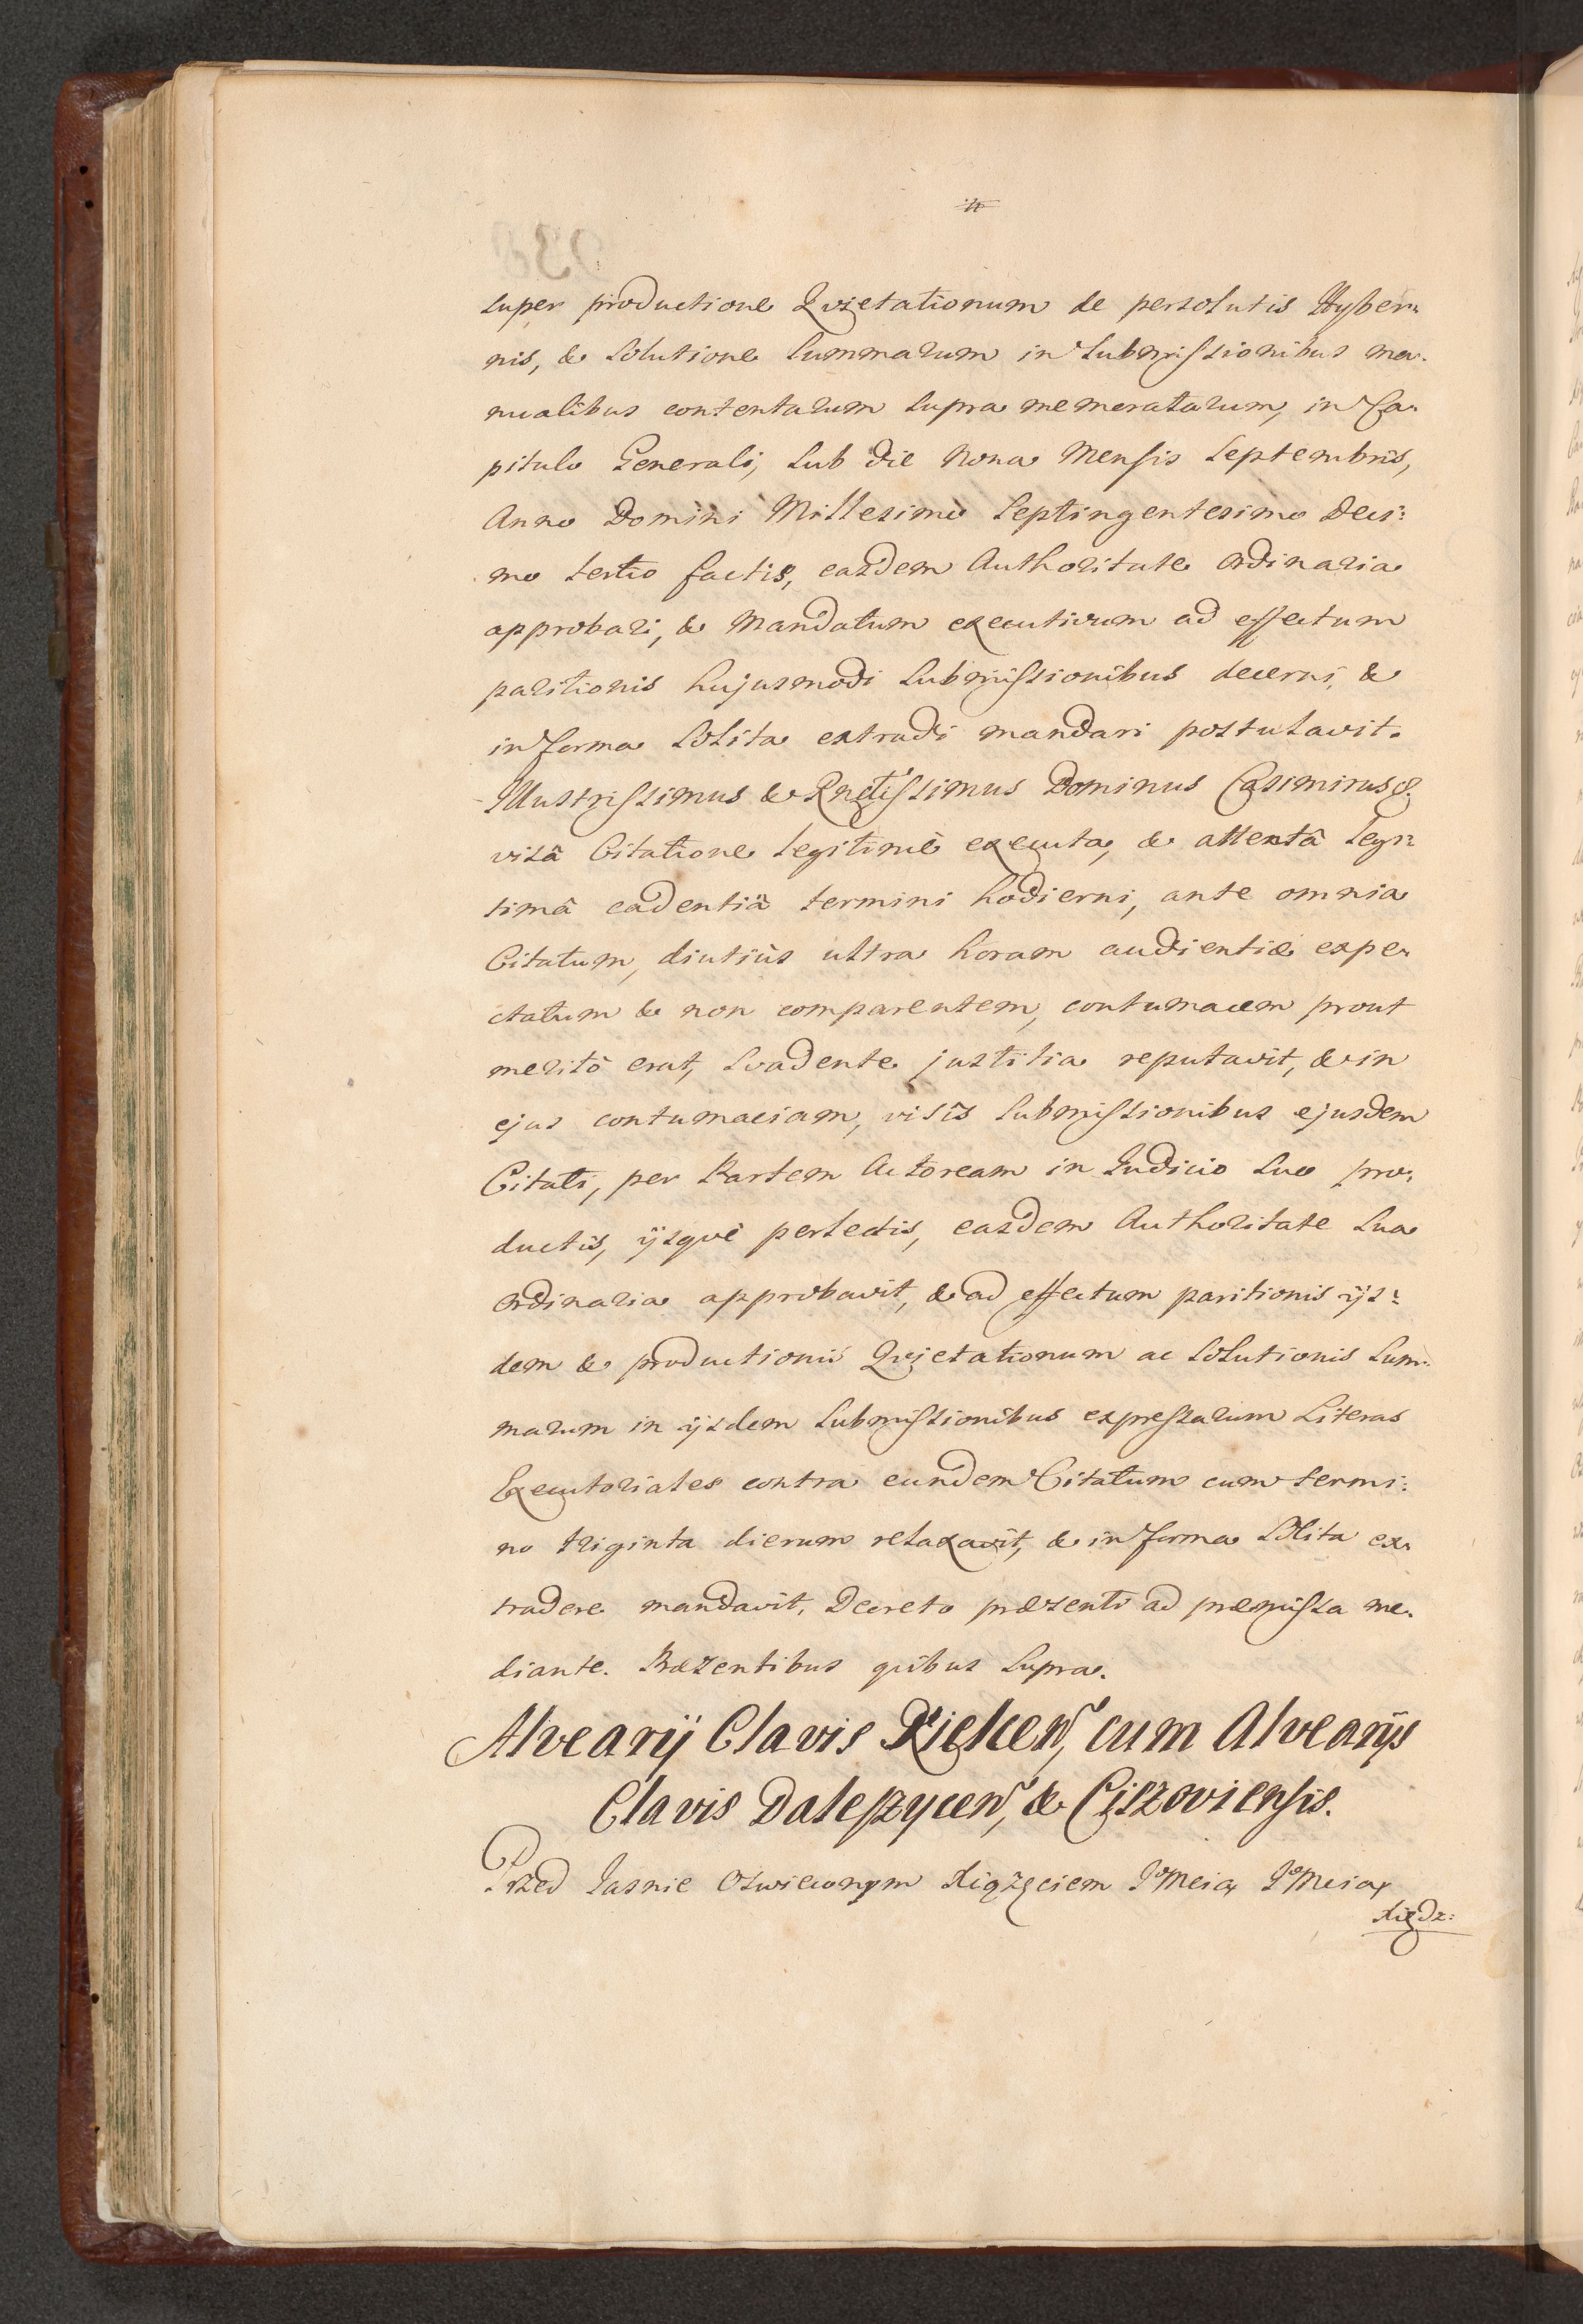 super productione Qvietationum de persolutis Hyber„
nis, & solutione summarum in submissionibus ma„
nualibus contentarum supra memoratarum, in Ca„
pitulo Generali, sub die Nona Mensis Septembris,
Anno Domini Millesimo Septingentesimo Deci„
mo tertio factis, easdem Authoritate Ordinaria
approbari, & Mandatum executivum ad effectum
paritionis hujusmodi submissionibus decerni, &
in forma solita extradi mandari postulavit.
Illustrissimus & Rndissimus Dominus Casimirus &.
visâ Citatione legitimè executa, & attentâ legi„
timâ cadentiâ termini hodierni, ante omnia
Citatum, diutiùs ultra horam audientiæ expe„
ctatum & non comparentem, contumacem prout
meritò erat, svadente justitia reputavit, & in
ejus contumaciam, visis submissionibus ejusdem
Citati, per Partem Actoream in Judicio suo pro„
ductis, ijsqve perlectis, easdem Authoritate sua
Ordinaria approbavit, & ad effectum paritionis ijs„
dem & productionis Qvietationum ac solutionis sum„
marum in ijsdem submissionibus expressarum Literas
Executoriales contra eundem Citatum cum termi„
no triginta dierum relaxavit, & in forma solita ex„
tradere mandavit, Decreto præsenti ad præmissa me„
diante. Præsentibus quibus supra.
Alvearij Clavis Kielcen, cum Alvearijs
Clavis Daleszycen, & Ciszoviensis.
Przed Jasnie Oswieconym Xiążęciem Jo Mcią Jo Mcią
Xiędz: